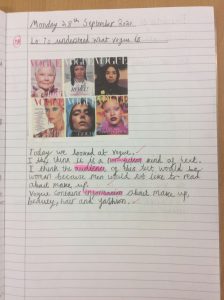 Monday 28th September 2021.
Lo: To understand what Vogue is
VOGUE VOGUE VOGUE
VOGUE VOGUE
Today we looked at Vogue.
I think it is a kind of text.
I think the audience of this text would be
woman because men would not like to read
about make up.
Vogue contains information about make up,
beauty, hair and fashion.